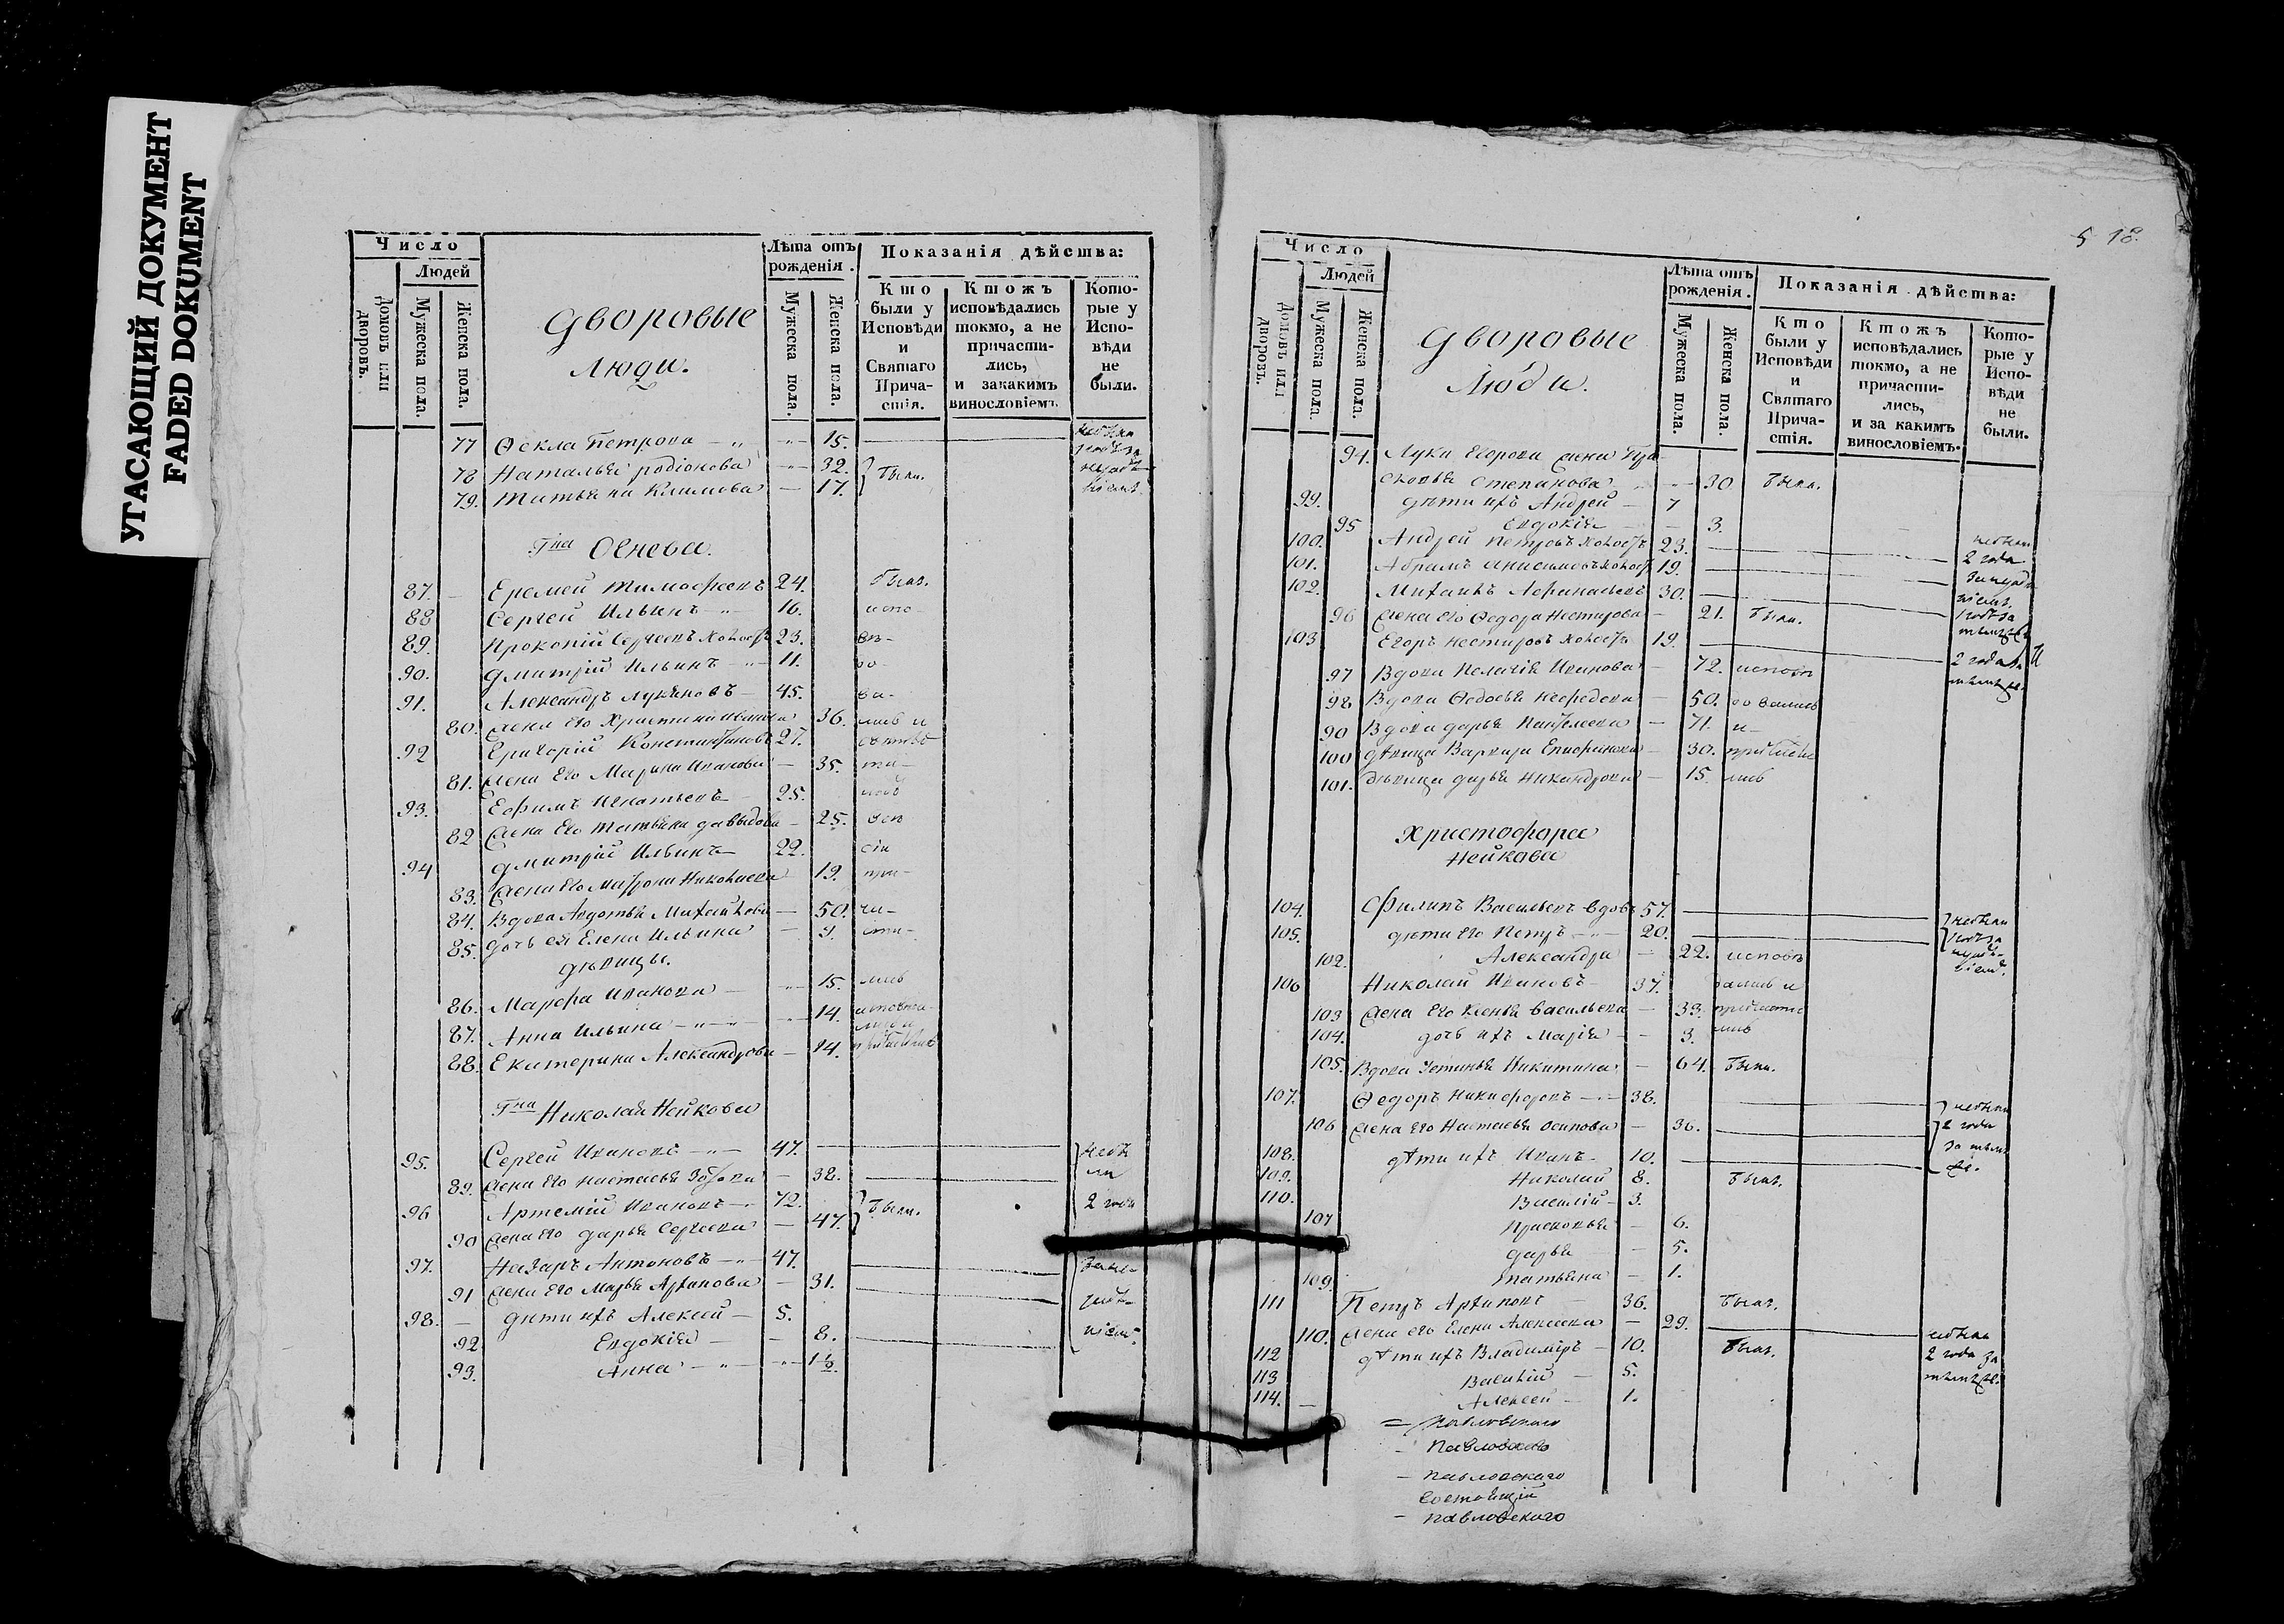 УГАСАЮЩИЙ ДОКУМЕНТ
FADED DOKUMENT
Число
Людей
Домовъ или дворовъ.
Мужеска пола.
Женска пола.
Дворовые
Люди.
Лѣта отъ рожденія.
Мужеска пола.
Женска пола.
Показанія дѣйства:
Кто были у Исповѣди и Святаго Причастія.
Ктожъ исповѣдались токмо, а не причастились, и закакимъ винословіемъ.
Которые у Исповѣди не были.
77 Ѳекла Петрова 15.
78 Наталья Родіонова 32. были.
79. Татьяна Климова 17.
Гна Огнева.
87. Еремей Тимофеевъ 24. былъ.
88 Сергей Ильинъ 16. испо-
89. Прокопій Сергеевъ холостъ 23. вѣ-
90. Дмитрій Ильинъ 11.
91. Александръ Лукяновъ 45.
80. Жена его Христина Иванова 36.
92 Григорій Констинтиновъ 27.
81. Жена Его Марина Иванова 35.
93. Ефимъ Игнатьевъ 25.
82 Жена Его Татьяна Давыдова 25.
94 Дмитрій Ильинъ 22.
83. Жена Его Матрона Николаева 19. при-
84. Вдова Авдотья Михайлова 50. ча-
85. Дочь ея Елена Ильина 9. сти-
Дѣвицы.
86. Марфа Иванова 15. лись
87. Анна Ильина 14.
88. Екатерина Александрова 14.
Гна Николая Нейкова
95. Сергей Ивановъ 47. небы
89. Жена Его Настасья 38. ли
96 Артемій Ивановъ 72. были. 2 года
90 Жена Его Дарья Сергеева 47.
97. Назаръ Антоновъ 47.
91 Жена Его Марья Архипова 31.
98. Дѣти ихъ Алексей 5.
92 Евдокія 8.
93. Анна 1½.
5 18.
Число
Людей
Домовъ или дворовъ.
Мужеска пола.
Женска пола.
Дворовые
Люди.
Лѣта отъ рожденія.
Мужеска пола.
Женска пола.
Показанія дѣйства:
Кто были у Исповѣди и Святаго Причастія.
Ктожъ исповѣдались токмо, а не причастились, и за какимъ винословіемъ.
Которые у Исповѣди не были.
94. Луки Егорова жена Пра-
сковья Степанова 30 были.
99. Дѣти ихъ Андрей 7
95 Евдокія 3.
100. Андрей Петровъ холостъ 23. небыли
101. Абрамъ Анисимовъ холост 19. 2 года
102. Михаилъ Афанасьевъ 30.
96 Жена Его Федора Нестирова 21. были.
103 Егоръ Нестировъ холостъ 19. 2 года
97 Вдова Пелагія Иванова 72. исповѣ
98 Вдова Ѳедосья Нефедова 50.
90 Вдова Дарья Пантелеева 71. и
100 Дѣвица Варвара 30.
101. Дѣвица Дарья Никандрова 15. лись
Христофора
Нейкова
104. Филипъ Васильевъ вдовъ 57. небыли
105. Дѣти Его Петръ 20.
102. Александра 22. исповѣ
106 Николай Ивановъ 37. дались и
103 Жена Его Ксенья Васильева 33.
104. дочь ихъ Марія 3. лись
105. Вдова Устинья Никитина 64. были.
107. Ѳедоръ Никифоровъ 38. небыли
106 Жена Его Настасья Осипова 36. 2 года
108. Дѣти ихъ Иванъ 10.
109. Николай 8. былъ.
110. Василій 3.
107 Прасковья 6.
Дарья 5.
109. Татьяна 1.
111 Петръ Архиповъ 36. былъ.
110. Жена его Елена Алексеева 29. небыла
112 дѣти ихъ Владиміръ 10. былъ. 2 года за
113 Василій 5.
114. Алексей 1.
= Павловскаго
- Павловскаго
- Павловскаго
Состоящій
- Павловскаго